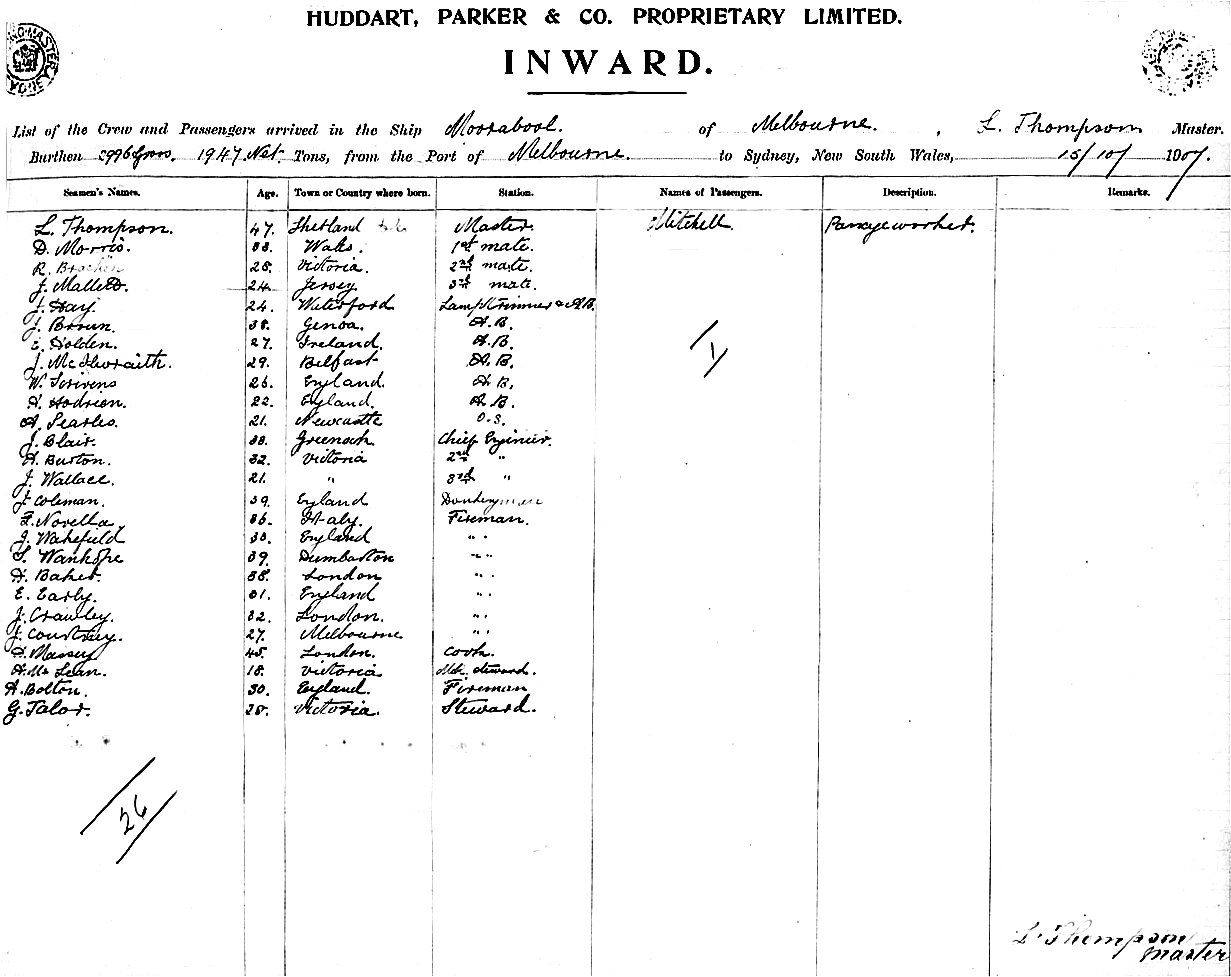 HUDDART, PARKER & CO. PROPRIETARY LIMITED.
INWARD.
List of the Crew and Passengers arrived in the Ship Moorabool. of Melbourne. , L. Thompson Master.
Burthen Gross. 1947 Net Tons, from the Port of Melbourne. to Sydney, New South Wales, 15/10/ 1907.
Seamen's Names. Age. Town or Country where born. Station. Names of Passengers. Description. Remarks.
L. Thompson. 47. Shetland Master. Mitchell
D. Morris. 33. Wales. 1st mate.
R. 28. Victoria. 2nd mate.
J. Mallett. 24. Jersey. 3rd mate.
J. Hay. 24. Waterford Lamptrimmer & A.B.
J. 38. Genoa. A.B.
E. Holden. 27. Ireland. A.B.
J. McIlwraith. 29. Belfast A.B.
W. Scrivens 26. England. A.B.
H. 22. England. A.B.
A. Searles. 21. Newcastle O.S.
J. Blair. 38. Greenock Chief Engineer.
H. Burton. 32. Victoria 2nd "
J. Wallace. 21. " 3rd "
J. Coleman. 39. England Donkeyman
F. Novella, 36. Italy. Fireman.
J. Wakefield 38. England " "
S. Wankope 39. Dumbarton " "
H. Baker. 38. London " "
E. Early. 31. England " "
J. Crawley. 32. London. " "
J. Courtney. 27. Melbourne " "
Massey 45. London. Cook.
H. McLean. 18. Victoria steward.
A. Bolton. 30. England. Fireman
G. Talor. 28. Victoria. Steward.
1
26
L. Thompson
Master